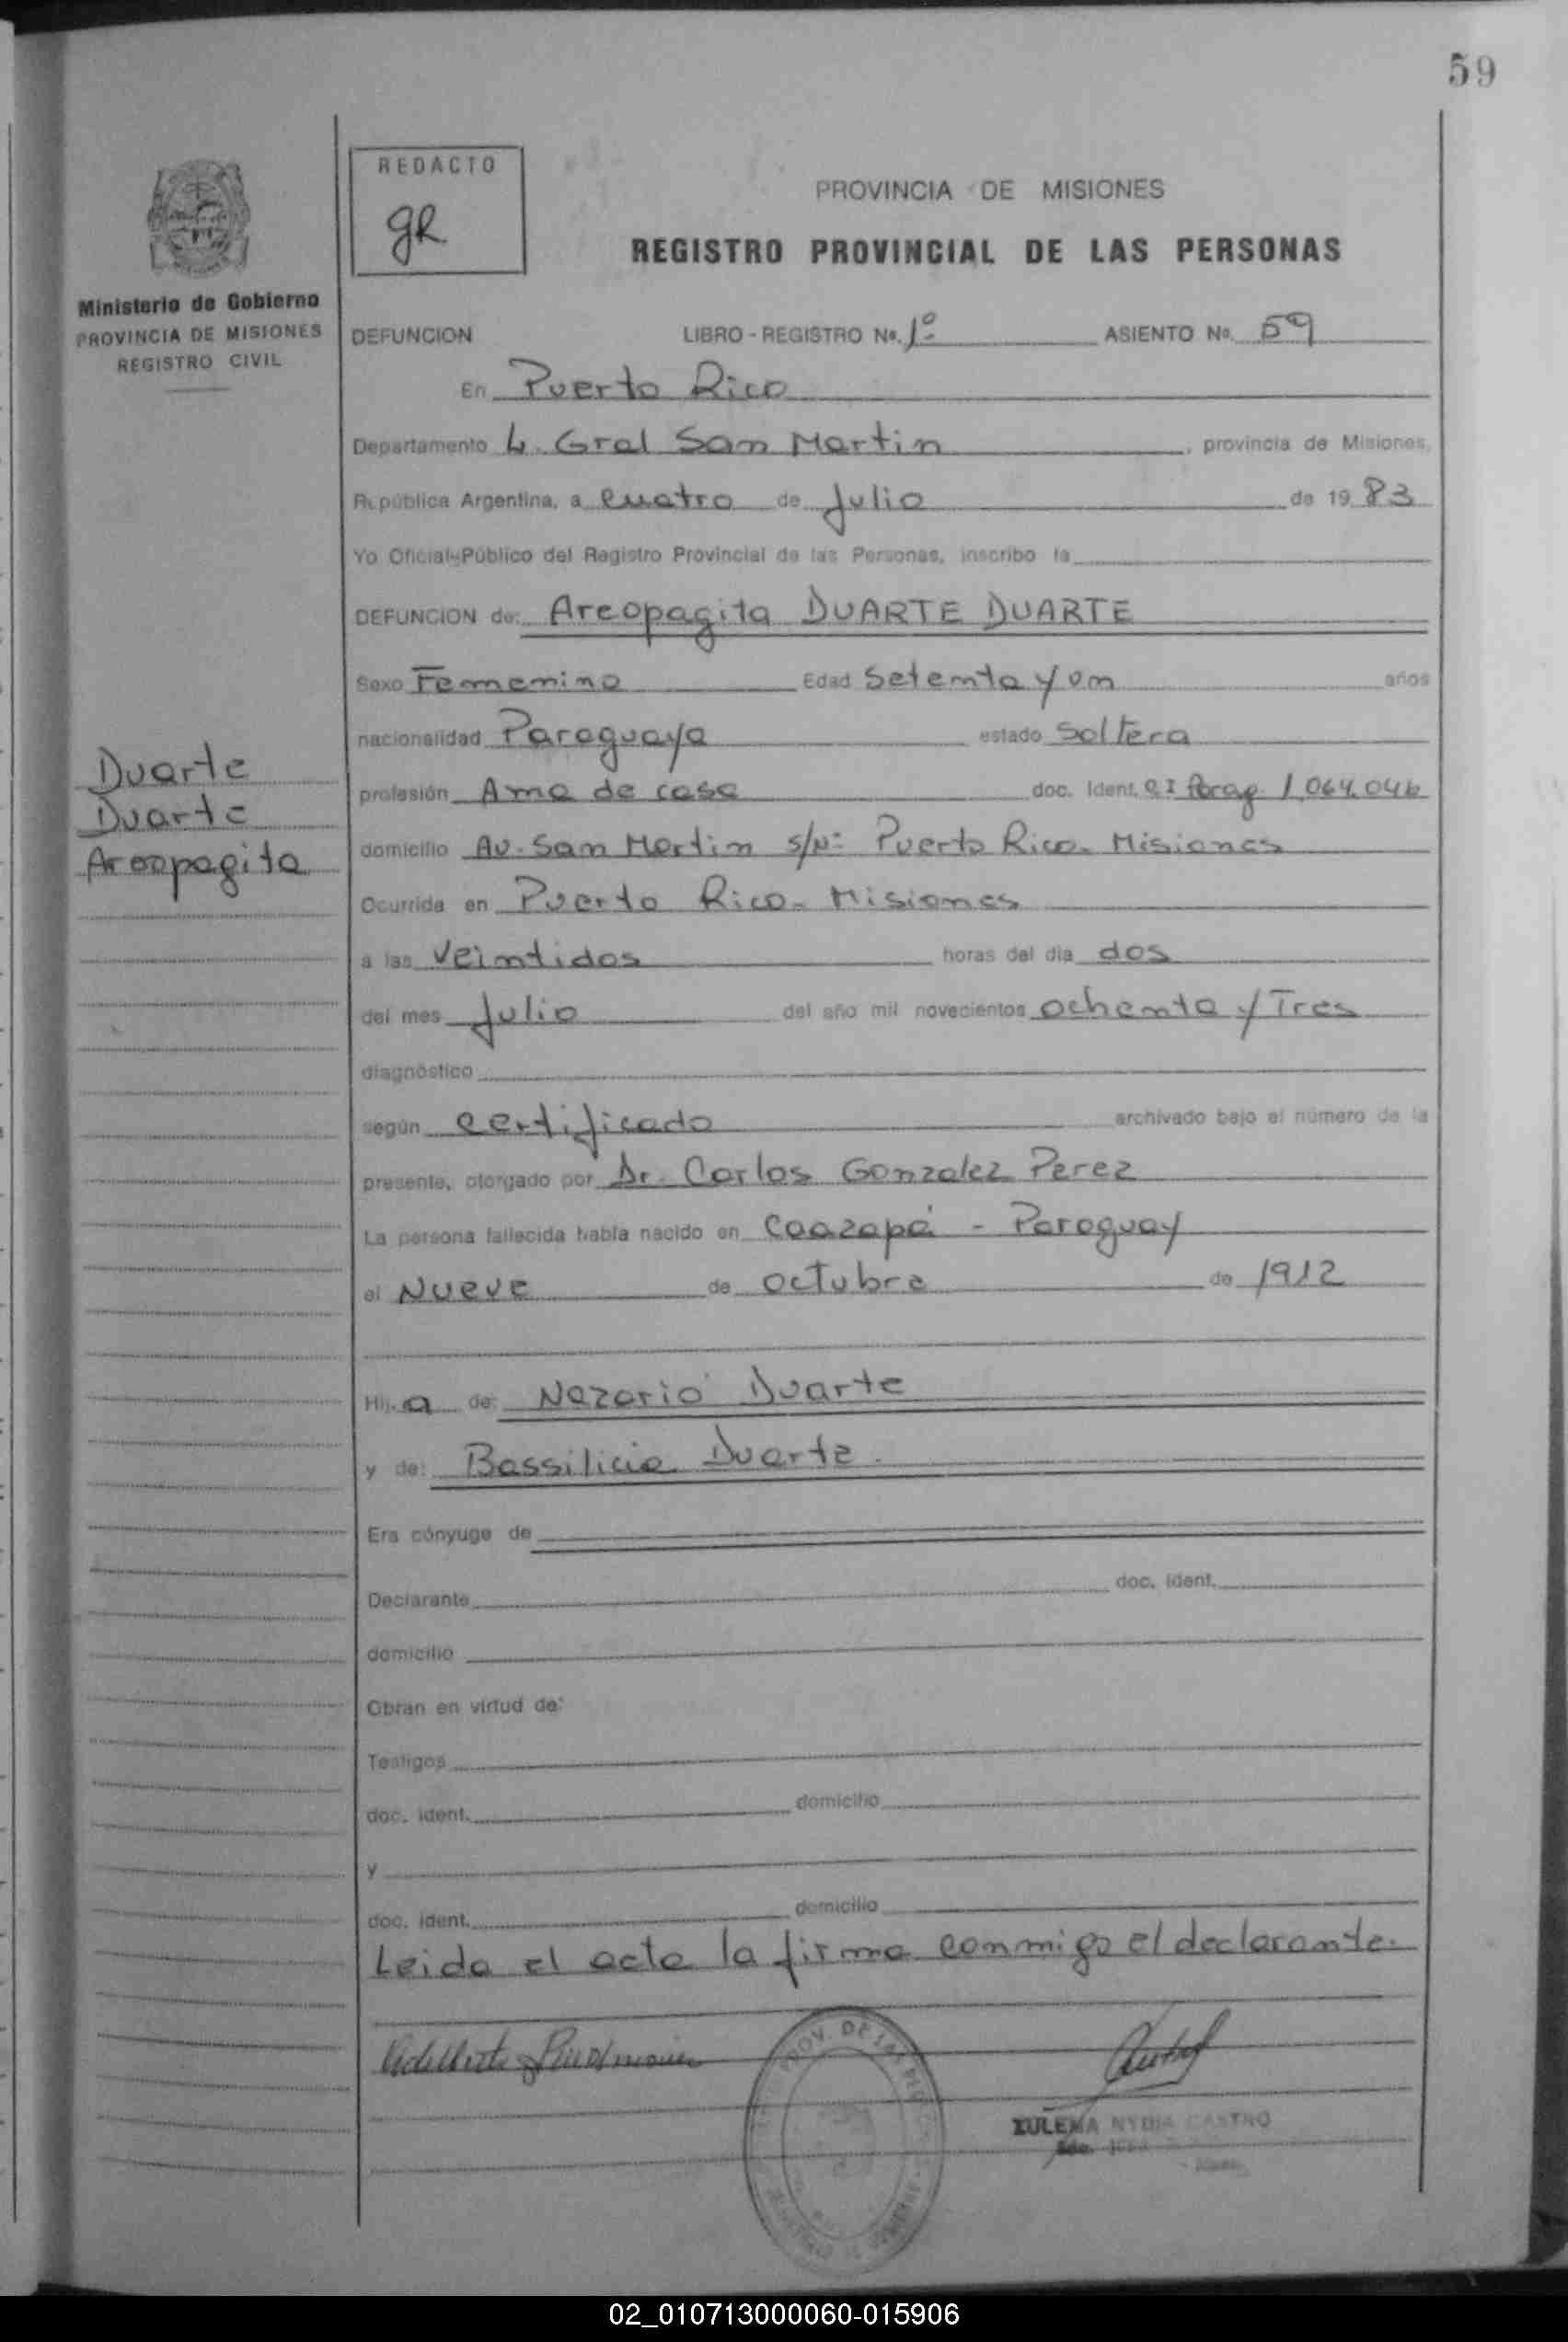 59
REDACTO
gR
PROVINCIA DE MISIONES
REGISTRO PROVINCIAL DE LAS PERSONAS
Ministerio de Gobierno
PROVINCIA DE MISIONES
REGISTRO CIVIL
DEFUNCION LIBRO - REGISTRO No. 1º ASIENTO No. 59
En Puerto Rico
Departamento L. Gral San Martin, provincia de Misiones,
República Argentina, a cuatro de Julio de 19 83
Yo Oficial-Público del Registro Provincial de las Personas, inscribo la
DEFUNCION de: Areopagita DUARTE DUARTE
Sexo Femenino Edad Setenta y un años
nacionalidad Paraguaya estado Soltera
Duarte
Duarte
Areopagita
profesión Ama de casa doc. Ident. C I Parag. 1.064.046
domicilio Av. San Martin s/Nº Puerto Rico. Misiones
Ocurrida en Puerto Rico. Misiones
a las veintidos horas del día dos
del mes Julio del año mil novecientos ochenta y Tres
diagnóstico
según certificado archivado bajo el número de la
presente, otorgado por Dr. Carlos Gonzalez Perez
La persona fallecida había nacido en Caazapá - Paraguay
el Nueve de octubre de 1912
Hij a de: Nazario Duarte
y de: Bassilicia Duarte.
Era cónyuge de
Declarante doc. ident.
domicilio
Obran en virtud de:
Testigos
doc. ident. domicilio
y
doc. ident. domicilio
Leida el acta la firma conmigo el declarante.
PROV. DE LAS
ZULEMA NYDIA CASTRO
02_010713000060-015906